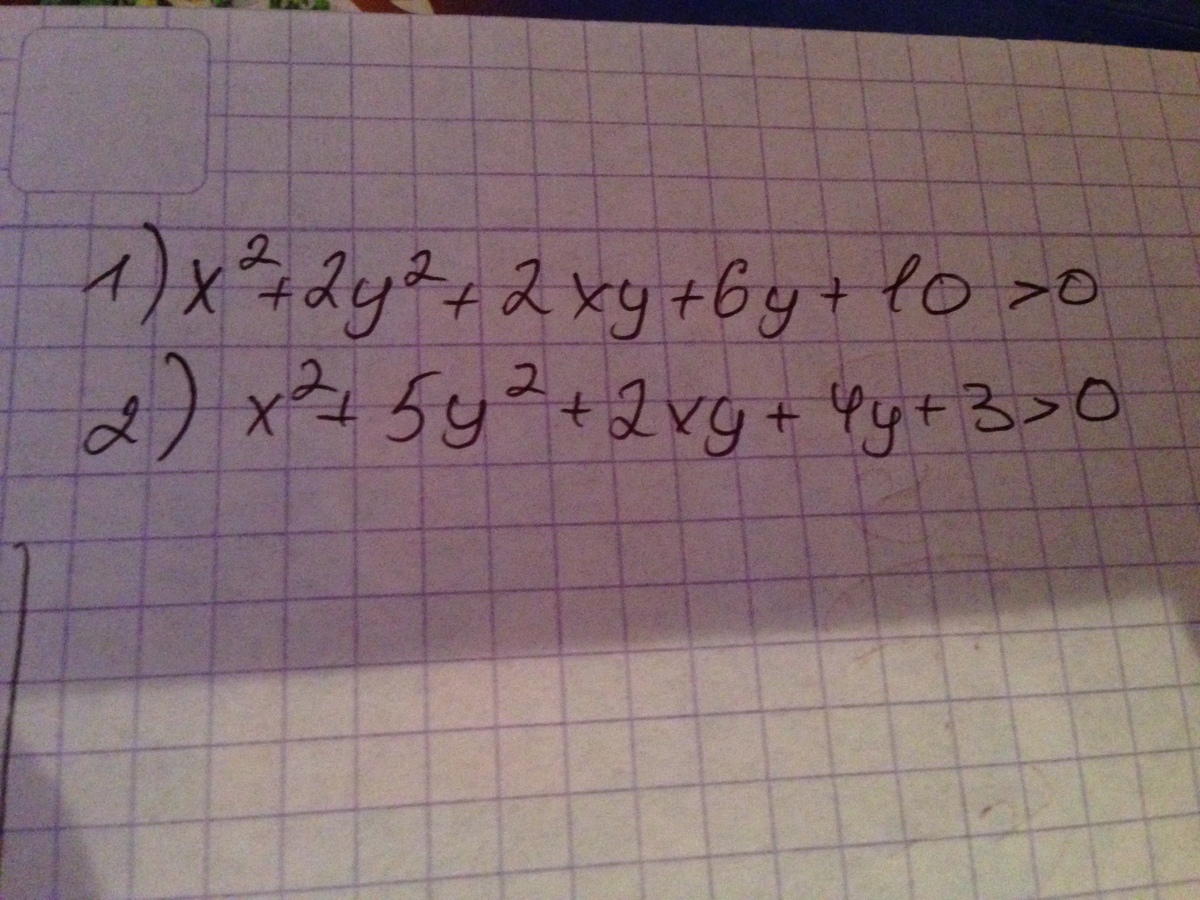 1) x²+2y²+2xy+6y+10>0
2) x²+5y²+2xy+4y+3>0